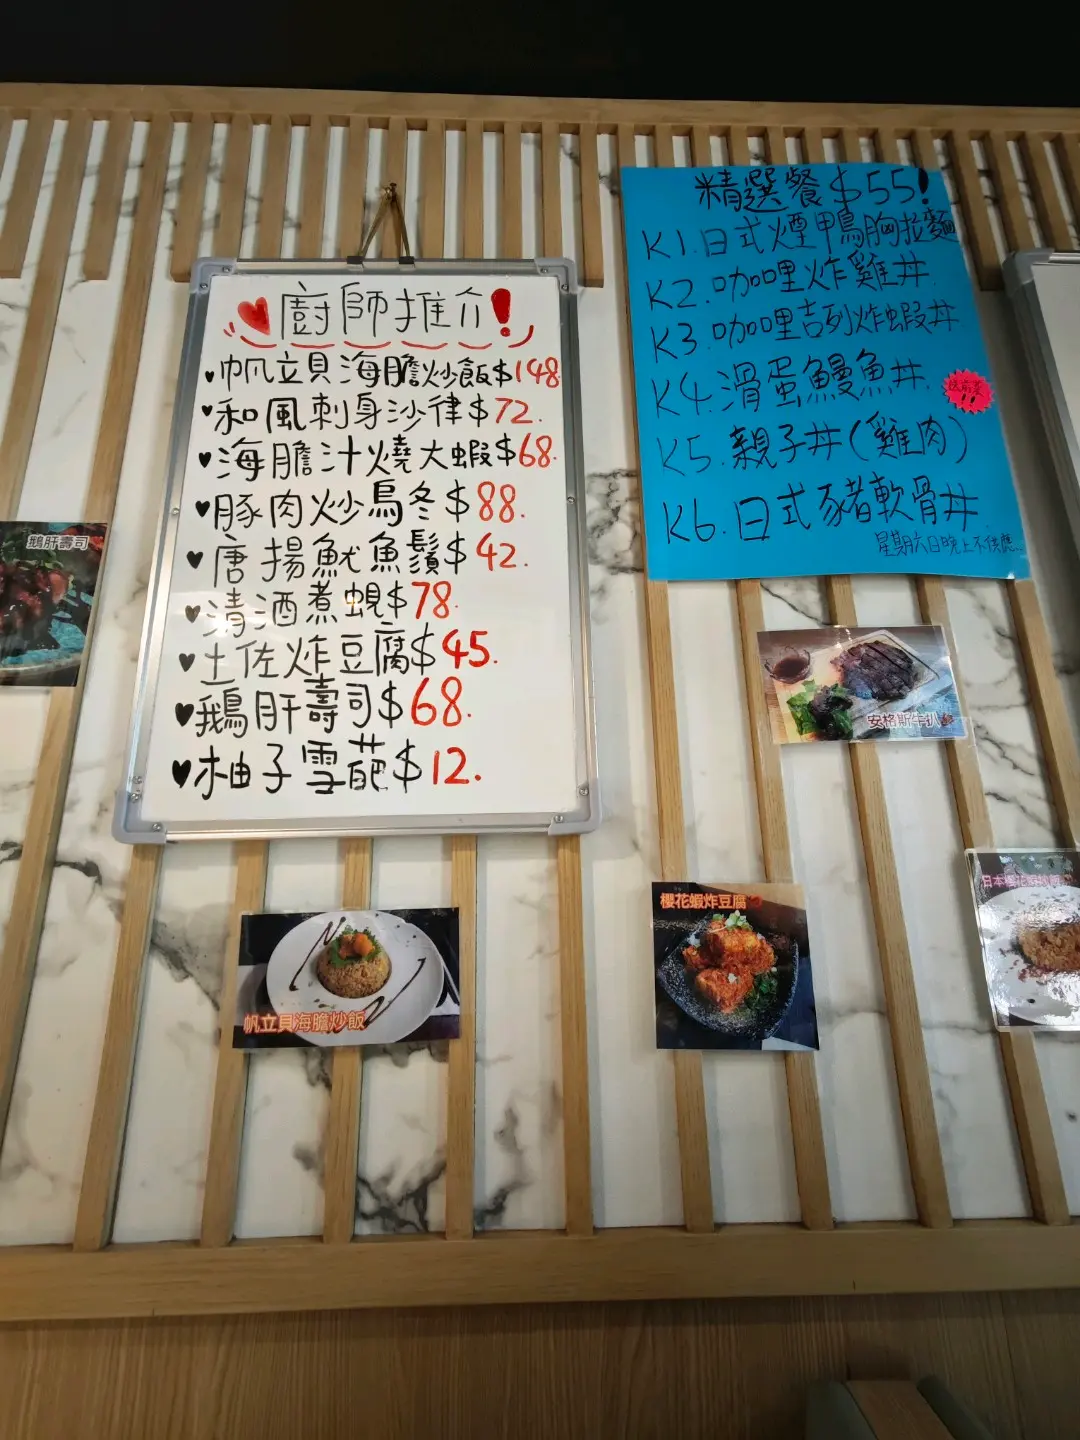 廚師推介!
帆立貝海膽炒飯$148
和風刺身沙律$72.
海膽汁燒大蝦$68.
豚肉炒烏冬$88.
唐揚魷魚鬚$42.
清酒煮蜆$78.
土佐炸豆腐$45.
鵝肝壽司$68.
柚子雪葩$12.
精選餐$55!
K1.日式煙鴨胸拉麵
K2.咖哩炸雞丼
K3.咖哩吉列炸蝦丼
K4.滑蛋鰻魚丼
K5.親子丼(雞肉)
K6.日式豬軟骨丼
星期六日晚上不供應
鵝肝壽司
安格斯牛扒
帆立貝海膽炒飯
櫻花蝦炸豆腐
日本櫻花蝦炒飯